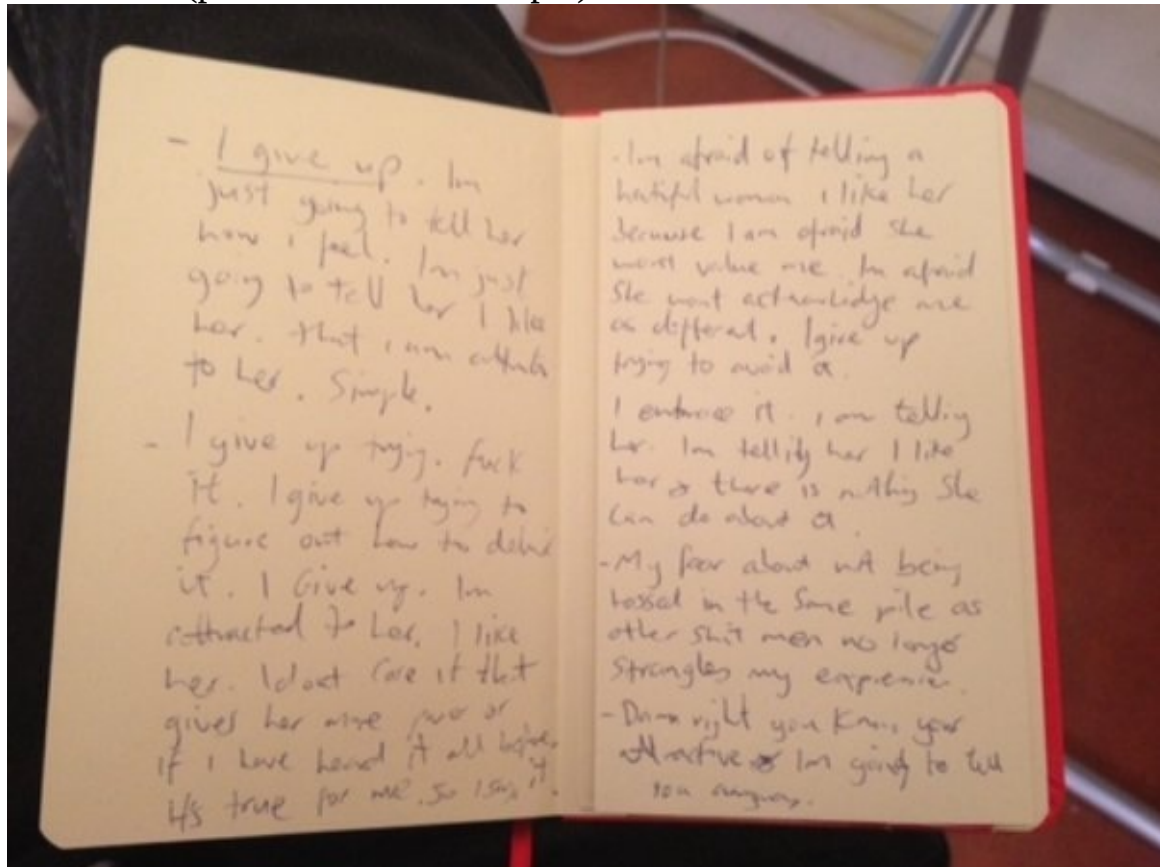 - I give up. Im
just going to tell her
how i feel. Im just
going to tell her I like
her. that i am
to her. Simple.
- I give up trying. fuck
it. I give up trying to
figure out how to
it. I Give up. Im
attracted to her. I like
her. I dont Care if that
gives her more power or
if i have heard it all before,
its true for me. so I say it.
- Im afraid of telling a
woman i like her
because I am afraid She
wont value me. Im afraid
She wont acknowlidge me
as different. I give up
trying to avoid it.
I embrace it. i am telling
her. Im telling her I like
her & there is nothing She
Can do about it.
- My fear about not being
tossed in the Same pile as
other shit men no longer
Strangles my
- Damn right you Know your
attractive & Im going to tell
you anyway.